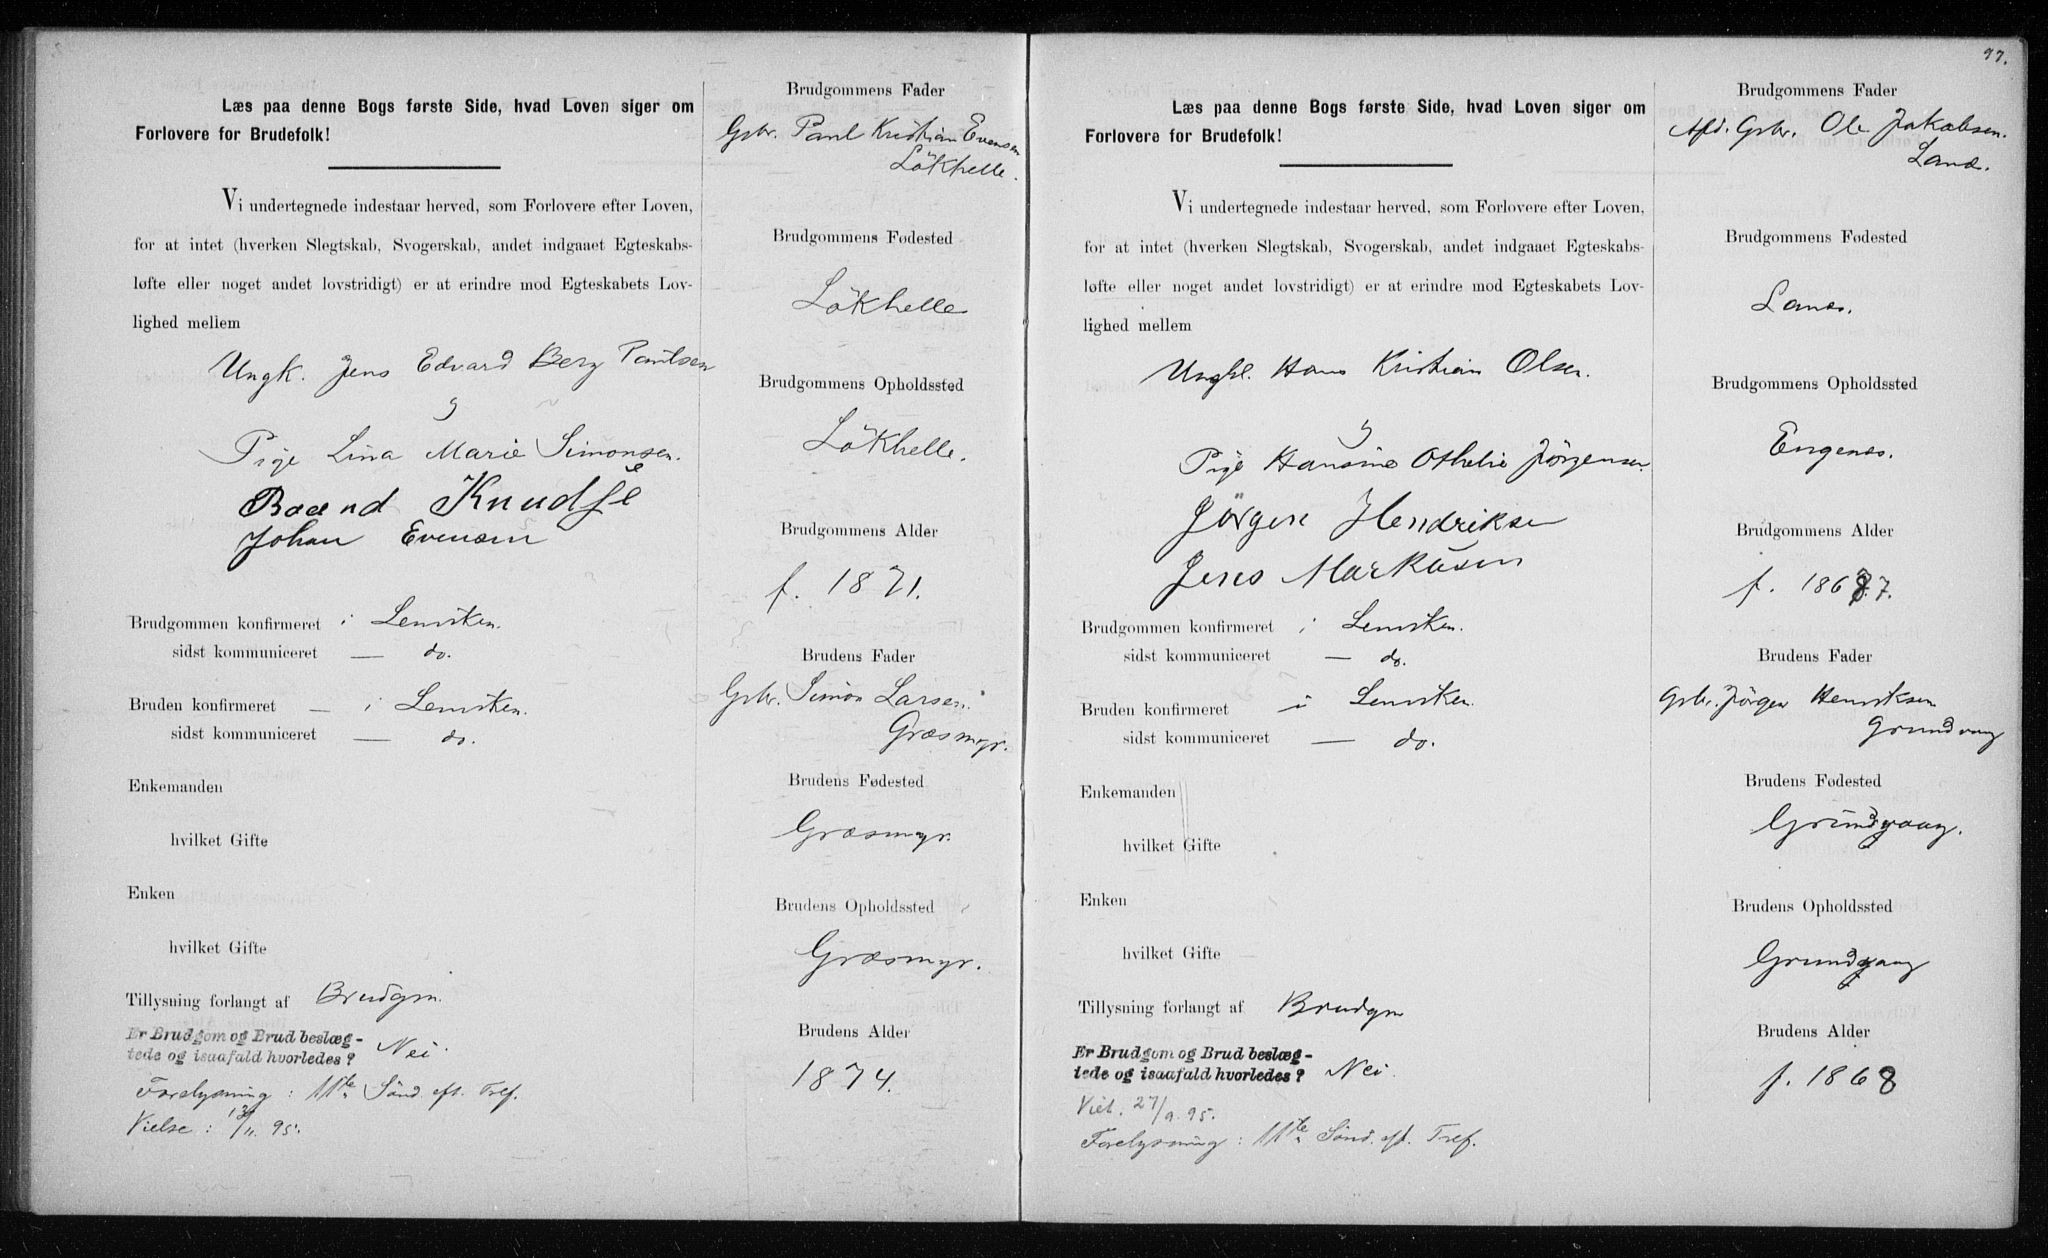 Læs paa denne Bogs første Side, hvad Loven siger om
Forlovere for Brudefolk!
Vi undertegnede indestaar herved, som Forlovere efter Loven,
for at intet (hverken Slegtskab, Svogerskab, andet indgaaet Egteskabs-
løfte eller noget andet lovstridigt) er at erindre mod Egteskabets Lov-
lighed mellem
Ungk. Jens Edvard Berg Paulsen
Pige Lina Marie Simonsen.
Knudse
Johan Evensen
Brudgommen konfirmeret i Lenviken.
sidst kommuniceret — do.
Bruden konfirmeret — i Lenviken.
sidst kommuniceret — do.
Enkemanden
hvilket Gifte
Enken
hvilket Gifte
Tillysning forlangt af Brudgm.
Er Brudgom og Brud beslæg-
tede og isaafald hvorledes? Nei.
Forelysning: 11te Sönd. eft. Tref.
Vielse: /11. 95.
Brudgommens Fader
Gbr. Paul Kristian Evensen
Lökhelle.
Brudgommens Fødested
Lökhelle
Brudgommens Opholdssted
Lökhelle.
Brudgommens Alder
f. 1871.
Brudens Fader
Gbr. Simon Larsen.
Græsmyr.
Brudens Fødested
Græsmyr.
Brudens Opholdssted
Græsmyr.
Brudens Alder
1874.
97.
Læs paa denne Bogs første Side, hvad Loven siger om
Forlovere for Brudefolk!
Vi undertegnede indestaar herved, som Forlovere efter Loven,
for at intet (hverken Slegtskab, Svogerskab, andet indgaaet Egteskabs-
løfte eller noget andet lovstridigt) er at erindre mod Egteskabets Lov-
lighed mellem
Ungkl. Hans Kristian Olsen.
Pige Hansine Othelie Jörgensen
Jörgen Hendriksen
Jens Markusen
Brudgommen konfirmeret i Lenviken.
sidst kommuniceret — do.
Bruden konfirmeret i Lenviken.
sidst kommuniceret — do.
Enkemanden
hvilket Gifte
Enken
hvilket Gifte
Tillysning forlangt af Brudgm
Er Brudgom og Brud beslæg-
tede og isaafald hvorledes? Nei.
Viet. 27/9. 95.
Forelysning: 11te Sönd. eft. Tref.
Brudgommens Fader
Afd. Gbr. Ole Jakobsen.
Lanes.
Brudgommens Fødested
Lanes.
Brudgommens Opholdssted
Engenes.
Brudgommens Alder
f. 1867.
Brudens Fader
Gbr. Jörgen Henriksen
Grundvaag
Brudens Fødested
Grundvaag.
Brudens Opholdssted
Grundvaag
Brudens Alder
f. 1868